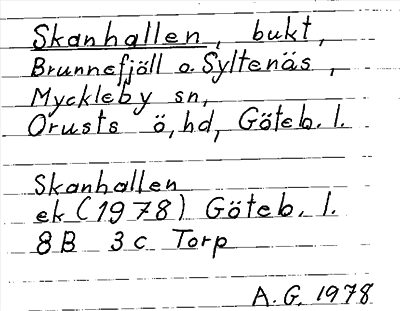 Skanhallen, bukt,
Brunnefjäll o. Syltenäs,
Myckleby sn,
Orusts ö, hd, Göteb. l.
Skanhallen
ek (1978) Göteb. l.
8B 3c Torp
A. G. 1978